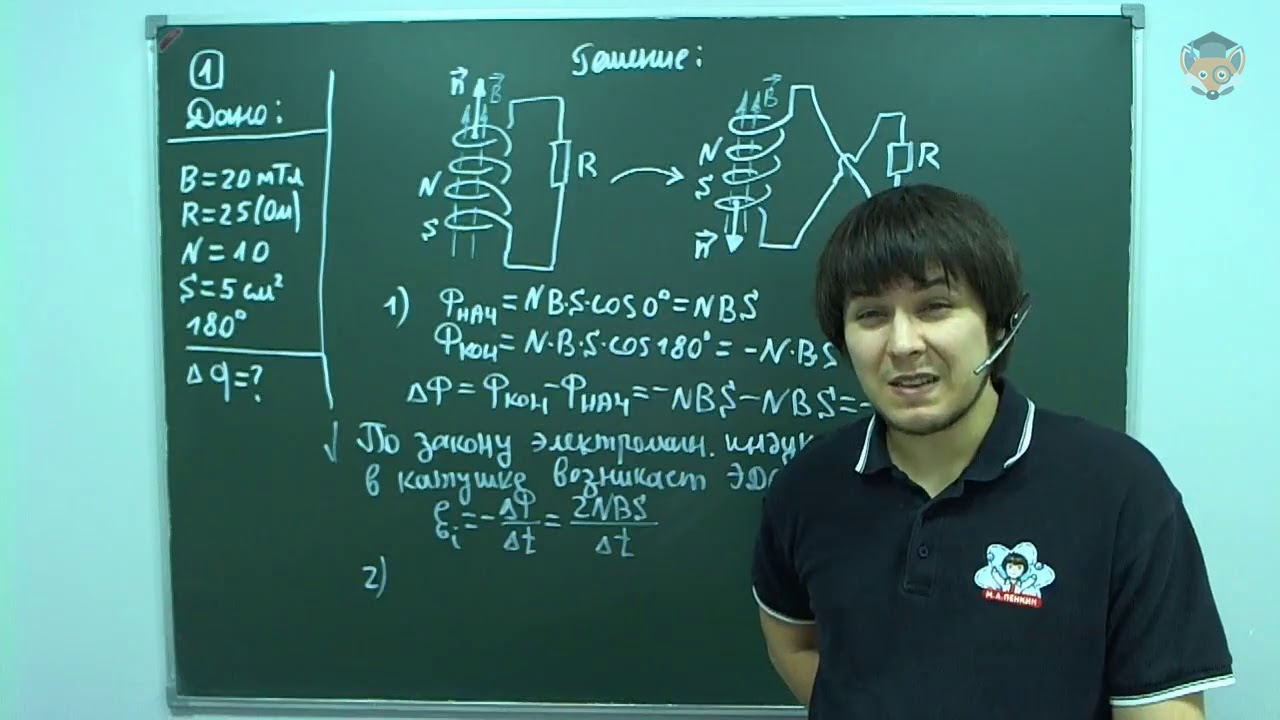 1
Дано:
B=20 мТл
R=25(Ом)
N=10
S=5 см²
180°
Δq=?
Решение:
n⃗ B⃗
N
S
R
B⃗
N
S
n⃗
R
1) Φнач=NB·S·cos0°=NBS
Φкон=N·B·S·cos180°=-N·BS
ΔΦ=Φкон-Φнач=-NBS-NBS=-
По закону электромагн. индук
в катушке возникает ЭДС
ℰi=-ΔΦ/Δt=2NBS/Δt
2)
М.А.ПЕНКИН